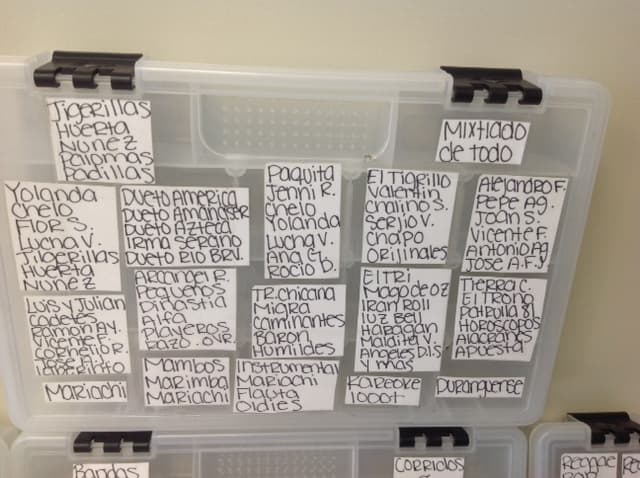 Jigerillas
Huerta
Nunez
Palomas
Padillas
Mixtiado
de todo
Yolanda
Chelo
Flor S.
Lucha V.
Jilgerillas
Huerta
Nunez
Dueto America
Dueto Amanecer
Dueto Azteca
Irma Serano
Dueto Rio BRV.
Paquita
Jenni R.
Chelo
Yolanda
Lucha V.
Ana G
Rocio D.
El Tigrillo
Valentin
Chalino S.
Sergio V.
Chapo
Originales
Alejandro F.
Pepe Ag.
Joan S.
Vicente F.
Antonio Ag
Jose A.F.J
Luis y Julian
Cadetes
Ramon Ay.
Vicente F.
Cornelio R.
Mariachi
Arcangel R.
Pequeños
Dinastia
Alfa
Playeros
Mambos
Marimba
Mariachi
TR. chicana
Migra
Caminantes
Baron
Humildes
Instrumental
Mariachi
Flauta
Oldies
El Tri
Mago de oz
Iran Roll
luz Bell
Haragan
Maldita V.
Angeles D.I.S.
y mas
Kareoke
1000+
Tierra C.
El Trono
Patrulla 81
Horoscopos
Alacranes
Apuesta
Duranguense
Bandas
Corridos
Reggae